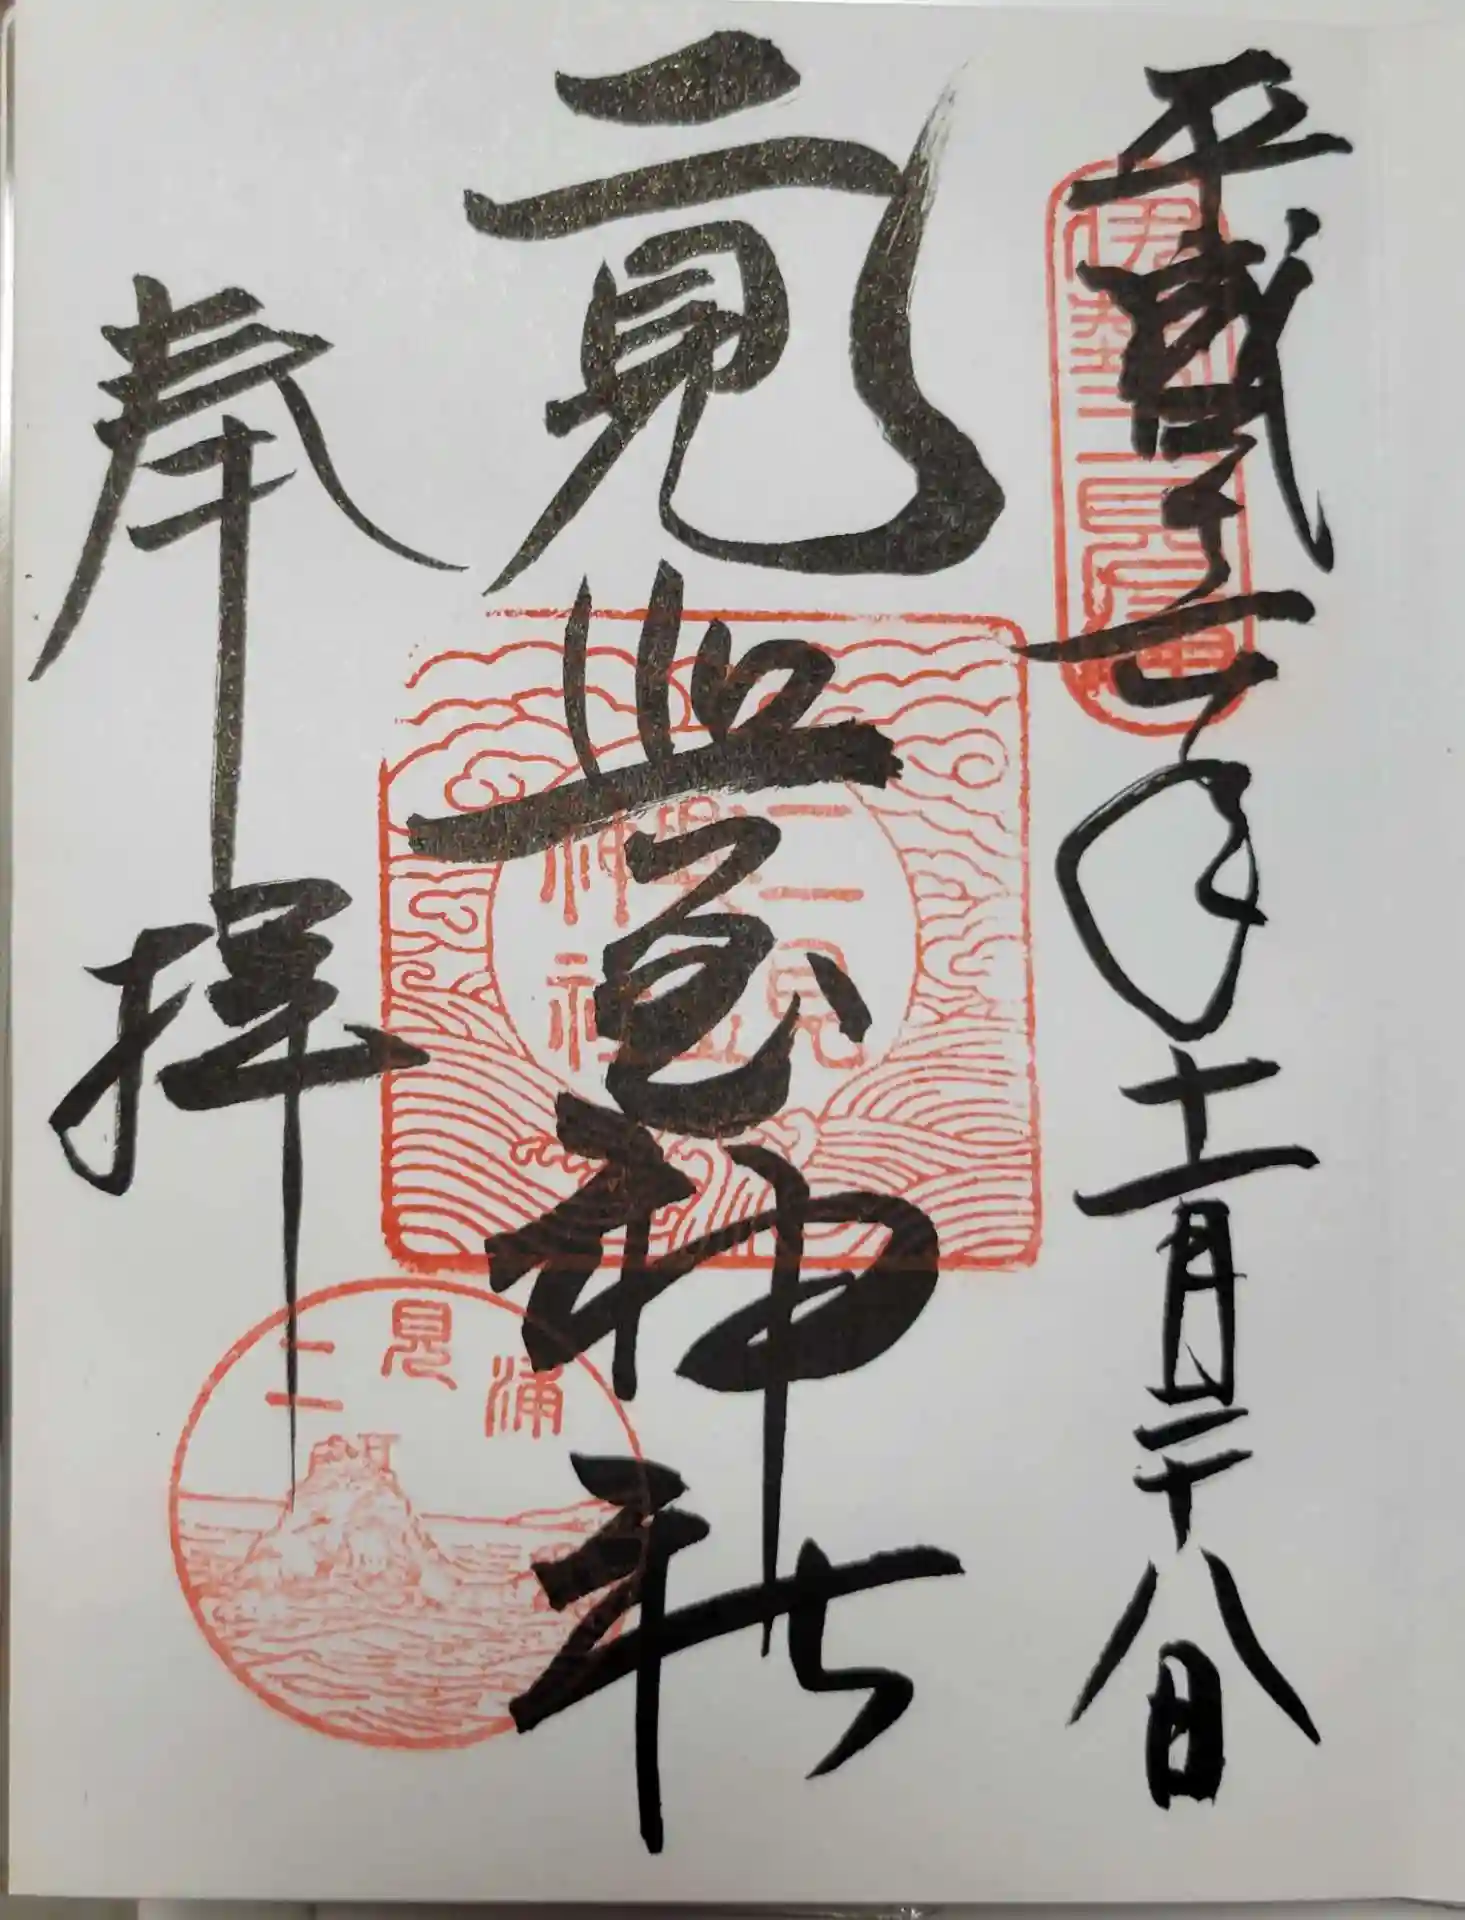 平成
年十一月二十八日
伊勢二見浦
二見興玉神社
二見
興玉
神社
奉拝
二見浦